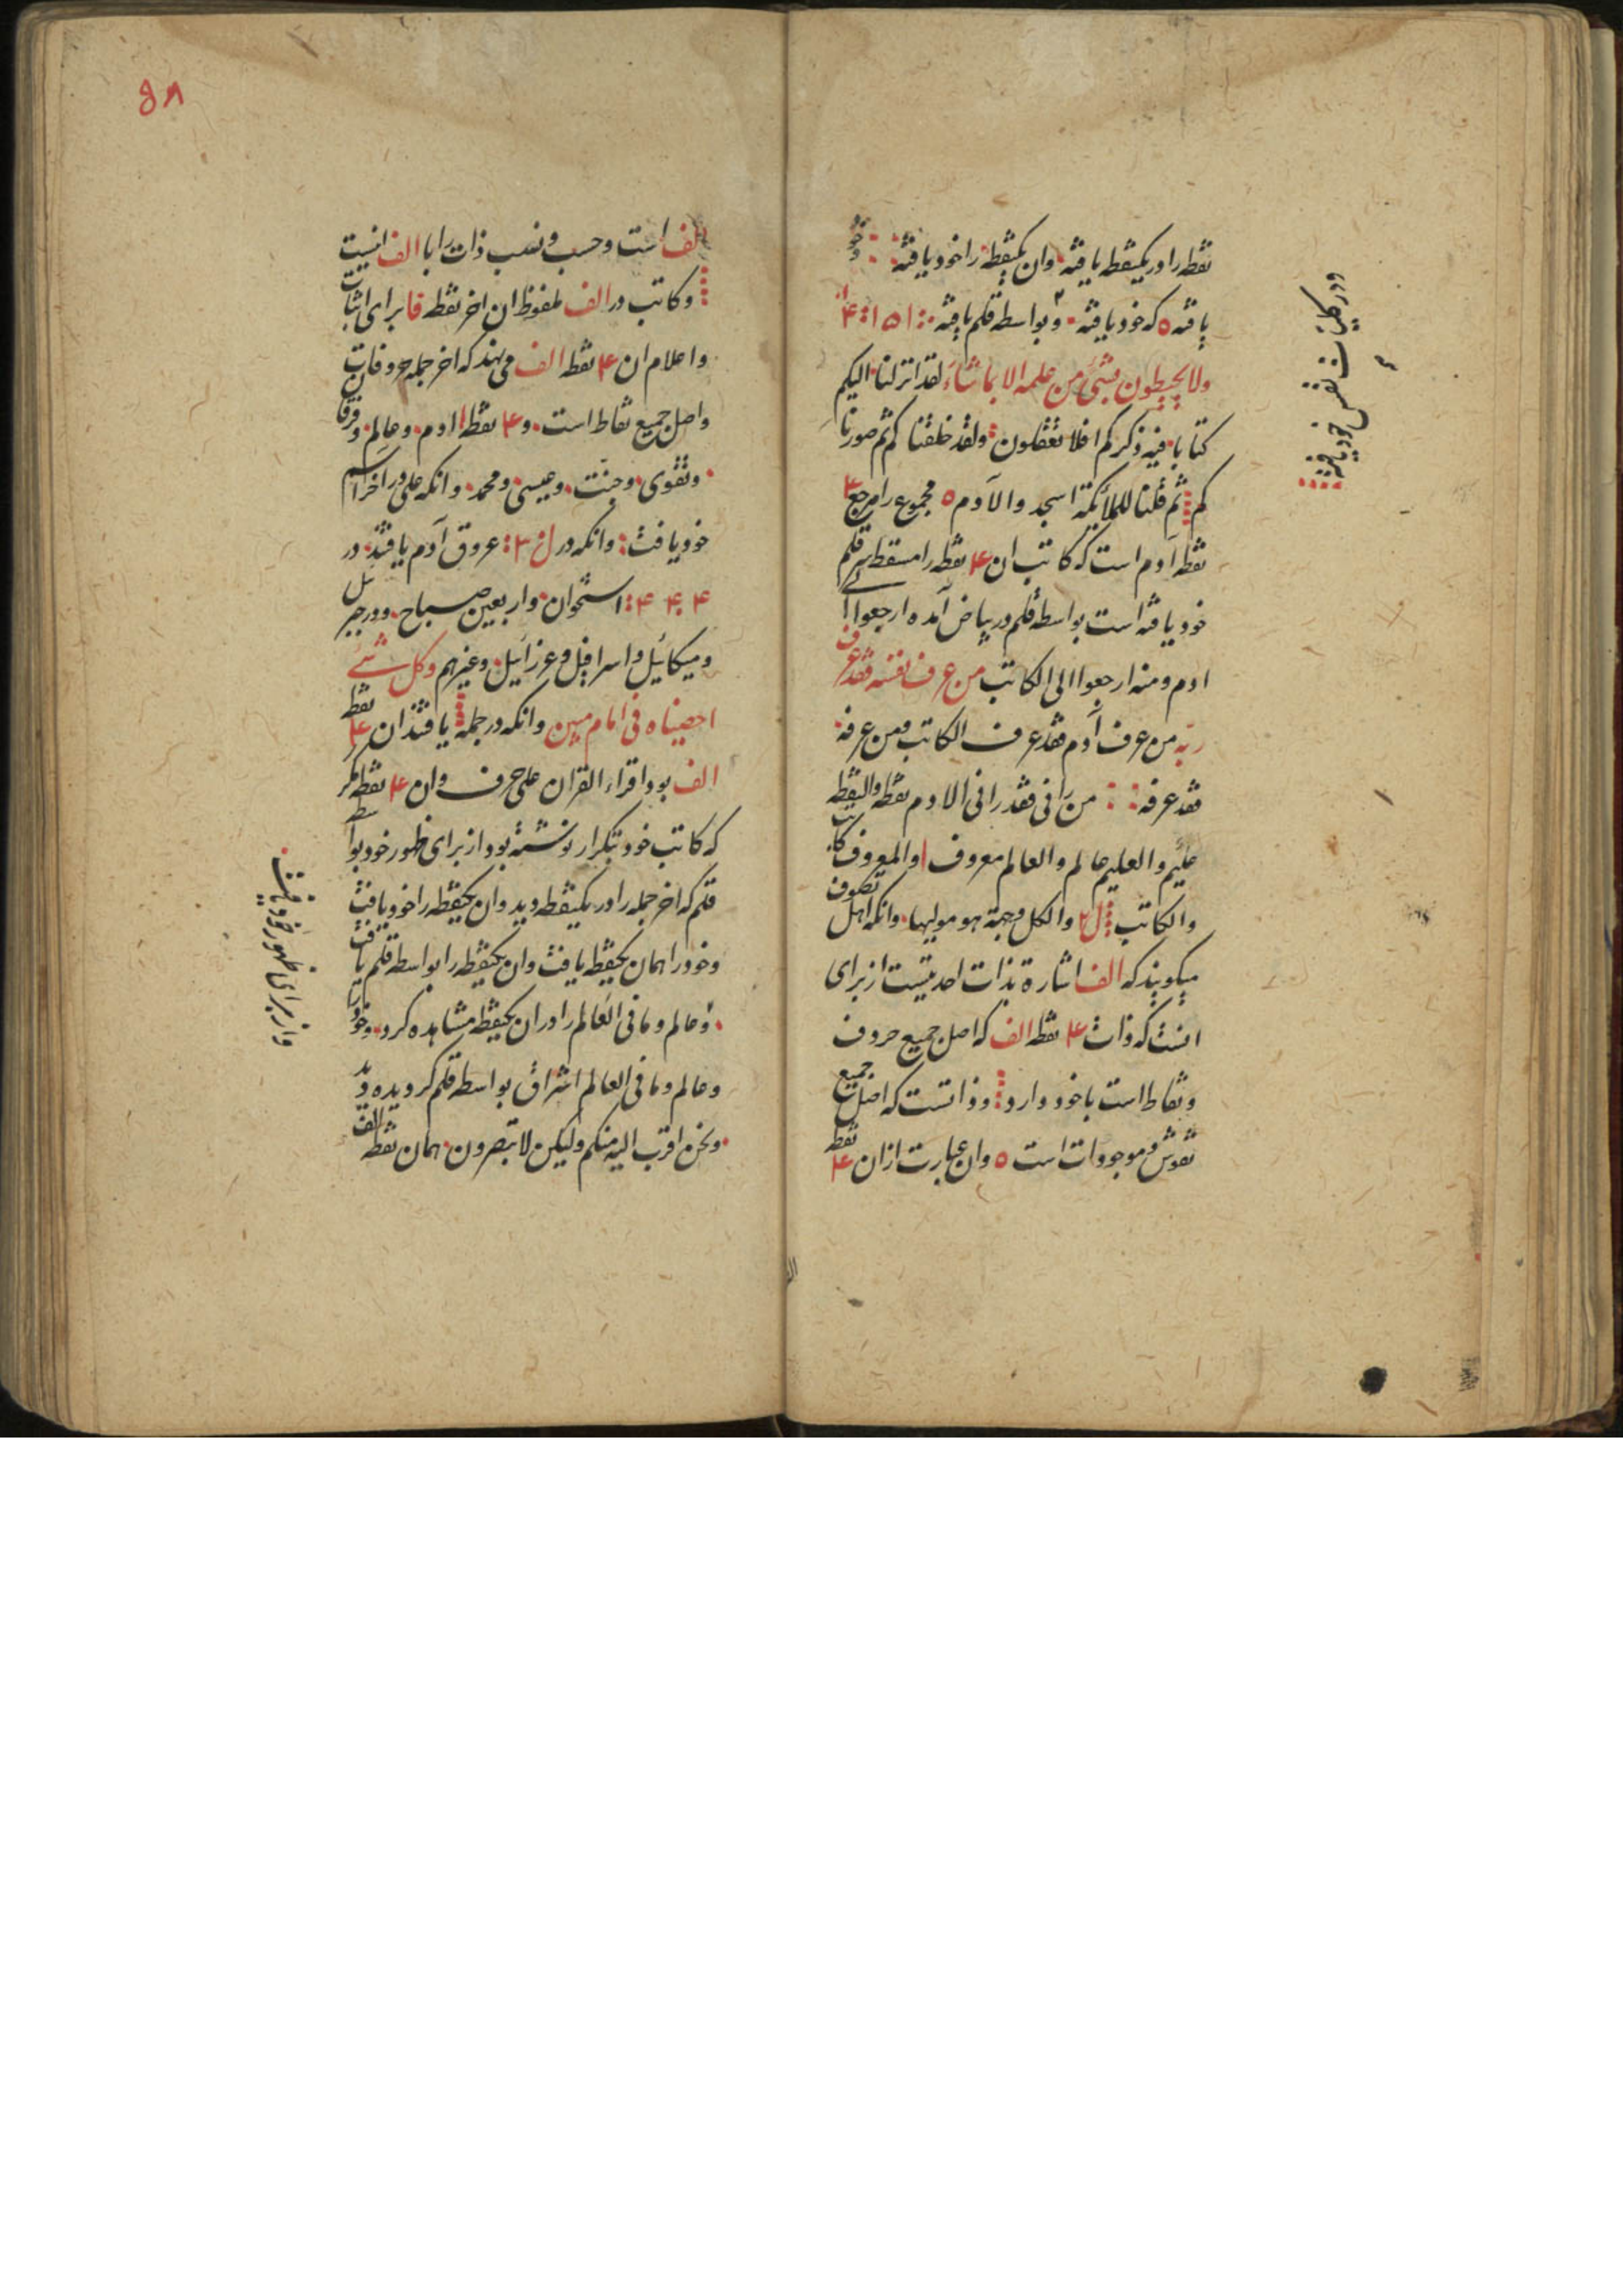 نقطه را در یکنقطه یافته وان یکنقطه را خود یافته وخود
یافته ٥ که خود یافته وبواسطه قلم یافته ١٥١ ۴
ولا یحیطون بشیء من علمه الا بما شاء لقد انزلنا الیکم
کتابا فیه ذکرکم افلا تعقلون ولقد خلقنا کم ثم صورنا
کم ثم قلنا للملائکة اسجدوا لآدم ٥ مجموع را مرجع ۴
نقطه آدم است که کاتب ان ۴ نقطه را مسقط سر قلم
خود یافته است بواسطه قلم در بیاض آمده ارجعوا الی
ادم ومنه ارجعوا الی الکاتب من عرف نفسه فقد عرف
ربه من عرف آدم فقد عرف الکاتب ومن عرفه
فقد عرفه من رانی فقد رانی الادم نقطه والنقطه
علیم والعلیم عالم والعالم معروف والمعروف کاتب
والکاتب ل٢ والکل وجهة هو مولیها وانکه اهل تصوف
میکویند که الف اشارة بذات احدیتیست از برای
انست که ذات ۴ نقطه الف که اصل جمیع حروف
ونقاط است با خود دارد وذاتست که اصل جمیع
نقوش وموجودات است ٥ وان عبارت از ان ۴ نقطه
ودر کلمات نفس خود یافته
٥٨
الف است وحسب ونسب ذات را با الف انیست
وکاتب در الف ملفوظ ان اخر نقطه فا برای اثبات
واعلام ان ۴ نقطه الف می نهد که اخر جمله حروفات
واصل جمیع نقاط است و ۴ نقطه ادم وعالم وفرقان
وتقوی وجنت وعیسی ومحمد وانکه علی در اخر اسم
خود یافت وانکه در ل ٣ عروق آدم یافتند در
۴ ۴ ۴ ۴ استخوان واربعین صباح ودر جبرئیل
ومیکائیل واسرافیل وعزرائیل وغیرهم وکل شیء
احصیناه فی امام مبین وانکه در جمله یافتند ان ۴ نقطه
الف بود اقراء القران علی حرف وان ۴ نقطه مکرر
که کاتب خود بتکرار نوشته بود از برای ظهور خود بواسطه
قلم که اخر جمله را در یکنقطه دید وان یکنقطه را خود یافت
وخود را همان یکنقطه یافت وان یکنقطه را بواسطه قلم یافت
وعالم وما فی العالم را در ان یکنقطه مشاهده کرد وخود را
وعالم وما فی العالم اشراق بواسطه قلم کردیده دید
ونحن اقرب الیه منکم ولیکن لا تبصرون همان نقطه الف
واز برای ظهور خود یافت